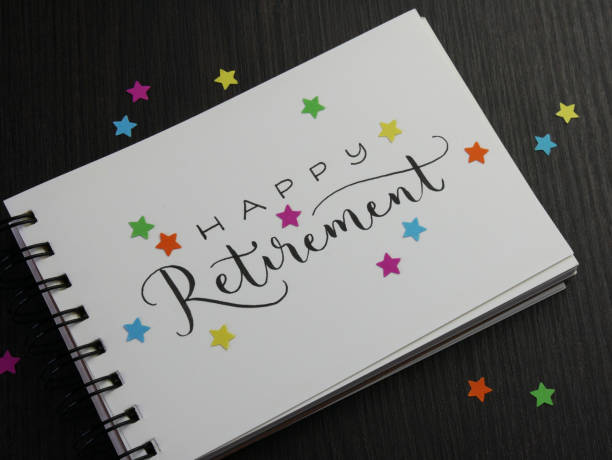 HAPPY
Retirement